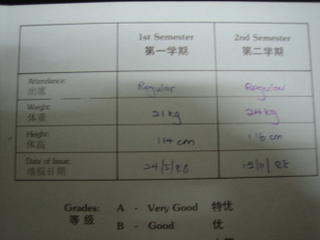 1st Semester 2nd Semester
第一学期 第二学期
Attendance: Regular Regular
出席
Weight: 21 kg 24 kg
体重
Height: 114 cm 116 cm
体高
Date of Issue:
填报日期
Grades: A - Very Good 特优
等级 B - Good 优